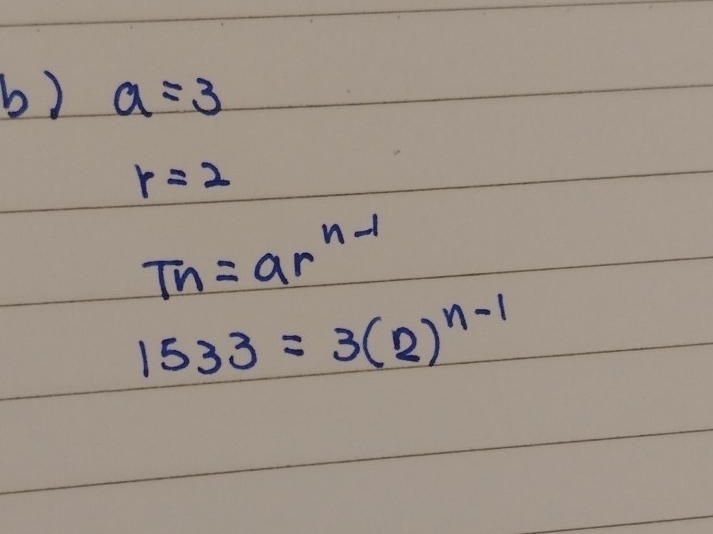 b) a = 3
r = 2
Tn = ar^{n-1}
1533 = 3(2)^{n-1}